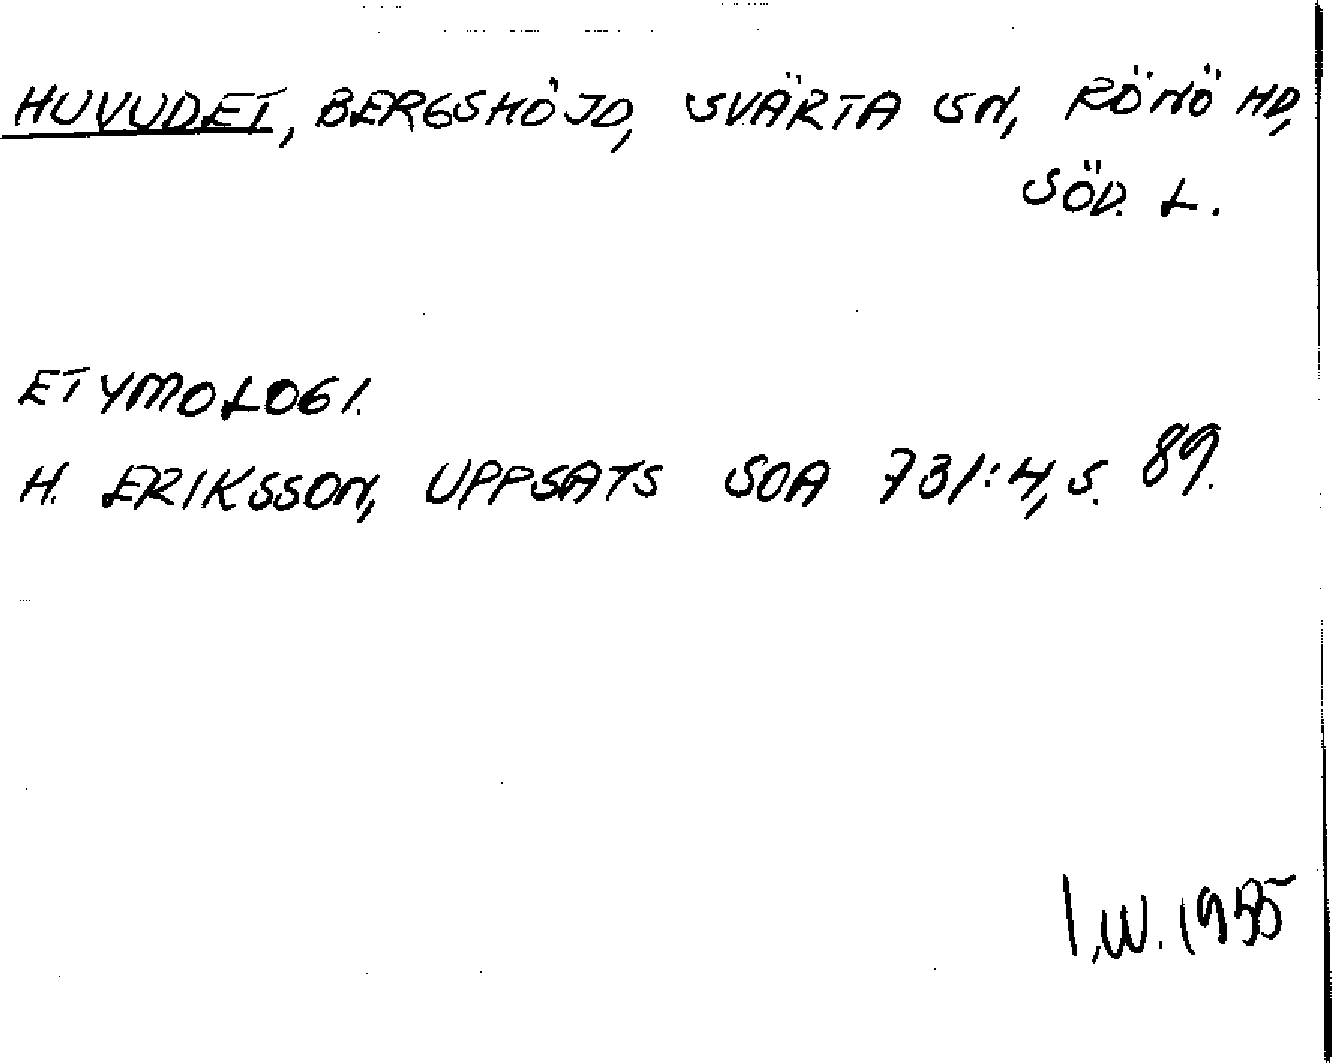 HUVUDET, BERGSHÖJD, SVÄRTA SN, RÖNÖ HD,
SÖD. L.
ETYMOLOGI.
H. ERIKSSON, UPPSATS SOA 731:4, S. 89.
I.W. 1955